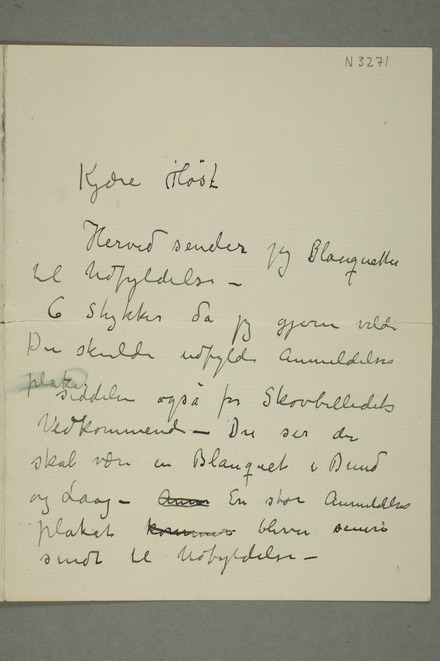 N 3271
Kjære Høst
Herved sender jeg Blanquetter
til Udfyldelse –
6 Stykker da jeg gjerne vilde
Du skulde udfylde Anmeldelses
plakat
seddelen også for Skovbilledets
Vedkommende – Du ser der
skal være en Blanquet i Bund
og Laag – En stor Anmeldelses
plakat kommer bliver senere
sendt til Udfyldelse –